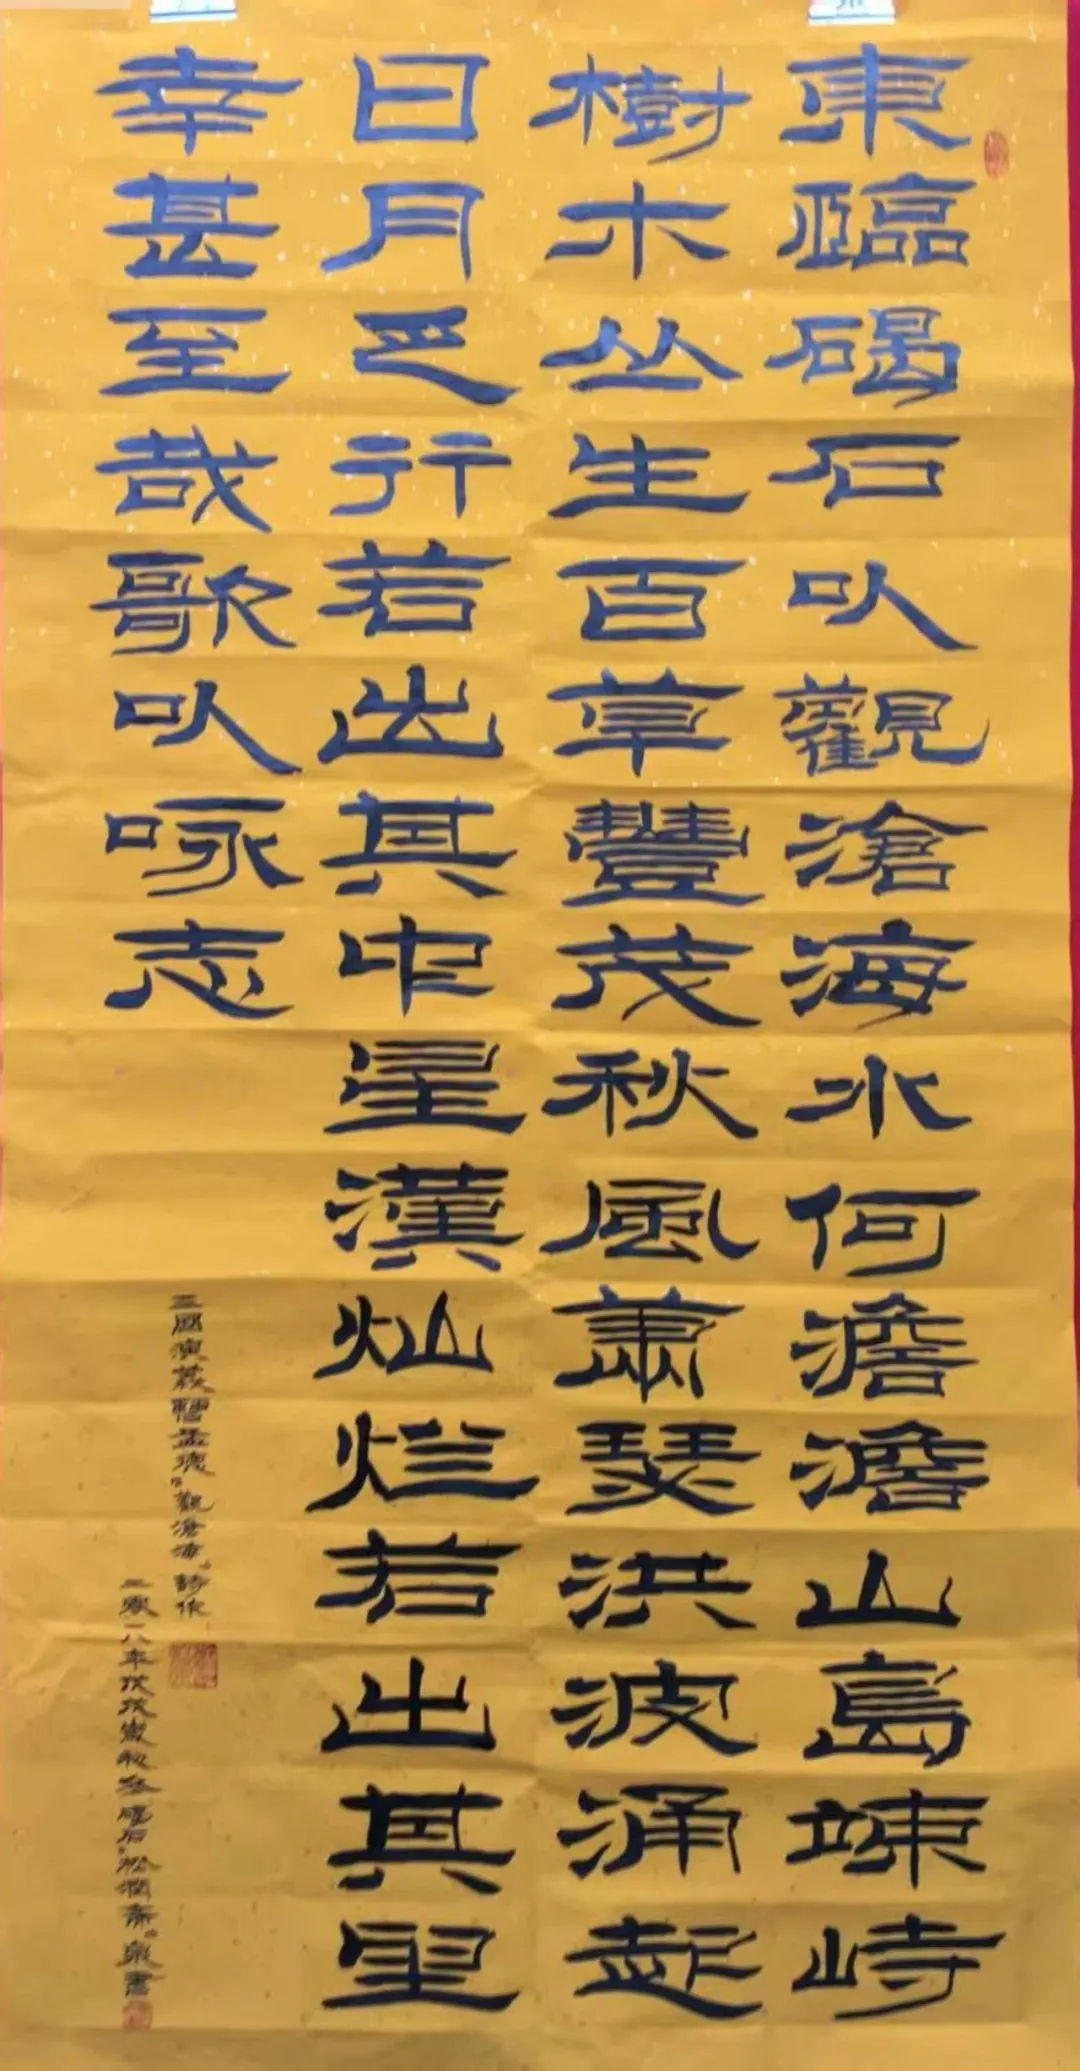 東臨碣石以觀滄海水何澹澹山島竦峙
樹木丛生百草豐茂秋風萧瑟洪波涌起
日月之行若出其中星漢灿烂若出其里
幸甚至哉歌以咏志
三國演義曹孟德“觀滄海”詩作
二零一八年戊戌歲秋石“松润斋”泉書